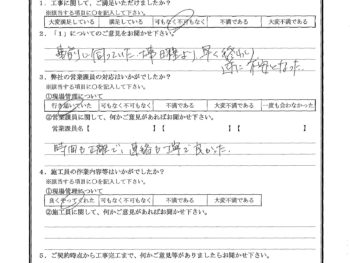 1. 工事に関して、ご満足いただけましたか?
※該当する項目に○を記入して下さい。
大変満足している 満足している 可も不可もなく 不満である 大変不満である
2. 「1」についてのご意見をお聞かせ下さい。
事前に伺っていた工事日程より早く終わり
逆に不安となった。
3. 弊社の営業課員の対応はいかがでしたか?
※該当する項目に○を記入して下さい。
①現場管理について
行き届いていた 可もなく不可もなく 不満である 大変不満である 一度も会わなかった
②営業課員に関して、何かご意見があればお聞かせ下さい。
営業課員名【 】【 】【 】
時間も正確で、連絡も丁寧で良かった。
4. 施工員の作業内容等はいかがでしたか?
※該当する項目に○を記入して下さい。
①現場管理について
良くやってくれた 可もなく不可もなく 不満である 大変不満である
②施工員に関して、何かご意見があればお聞かせ下さい。
5. ご契約時点から工事完了まで、何かご意見等がありましたらお聞かせ下さい。